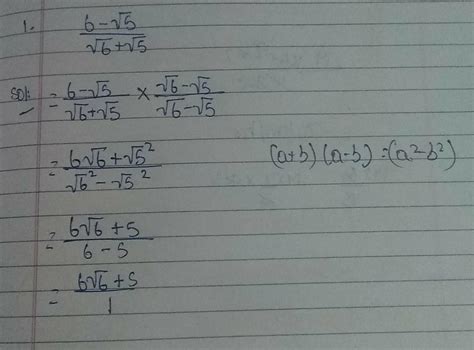 1. 6-√5 / √6+√5
Sol: = 6-√5 / √6+√5 × √6-√5 / √6-√5
= 6√6+√5² / √6²-√5² (a+b)(a-b)=(a²-b²)
= 6√6+5 / 6-5
= 6√6+5 / 1